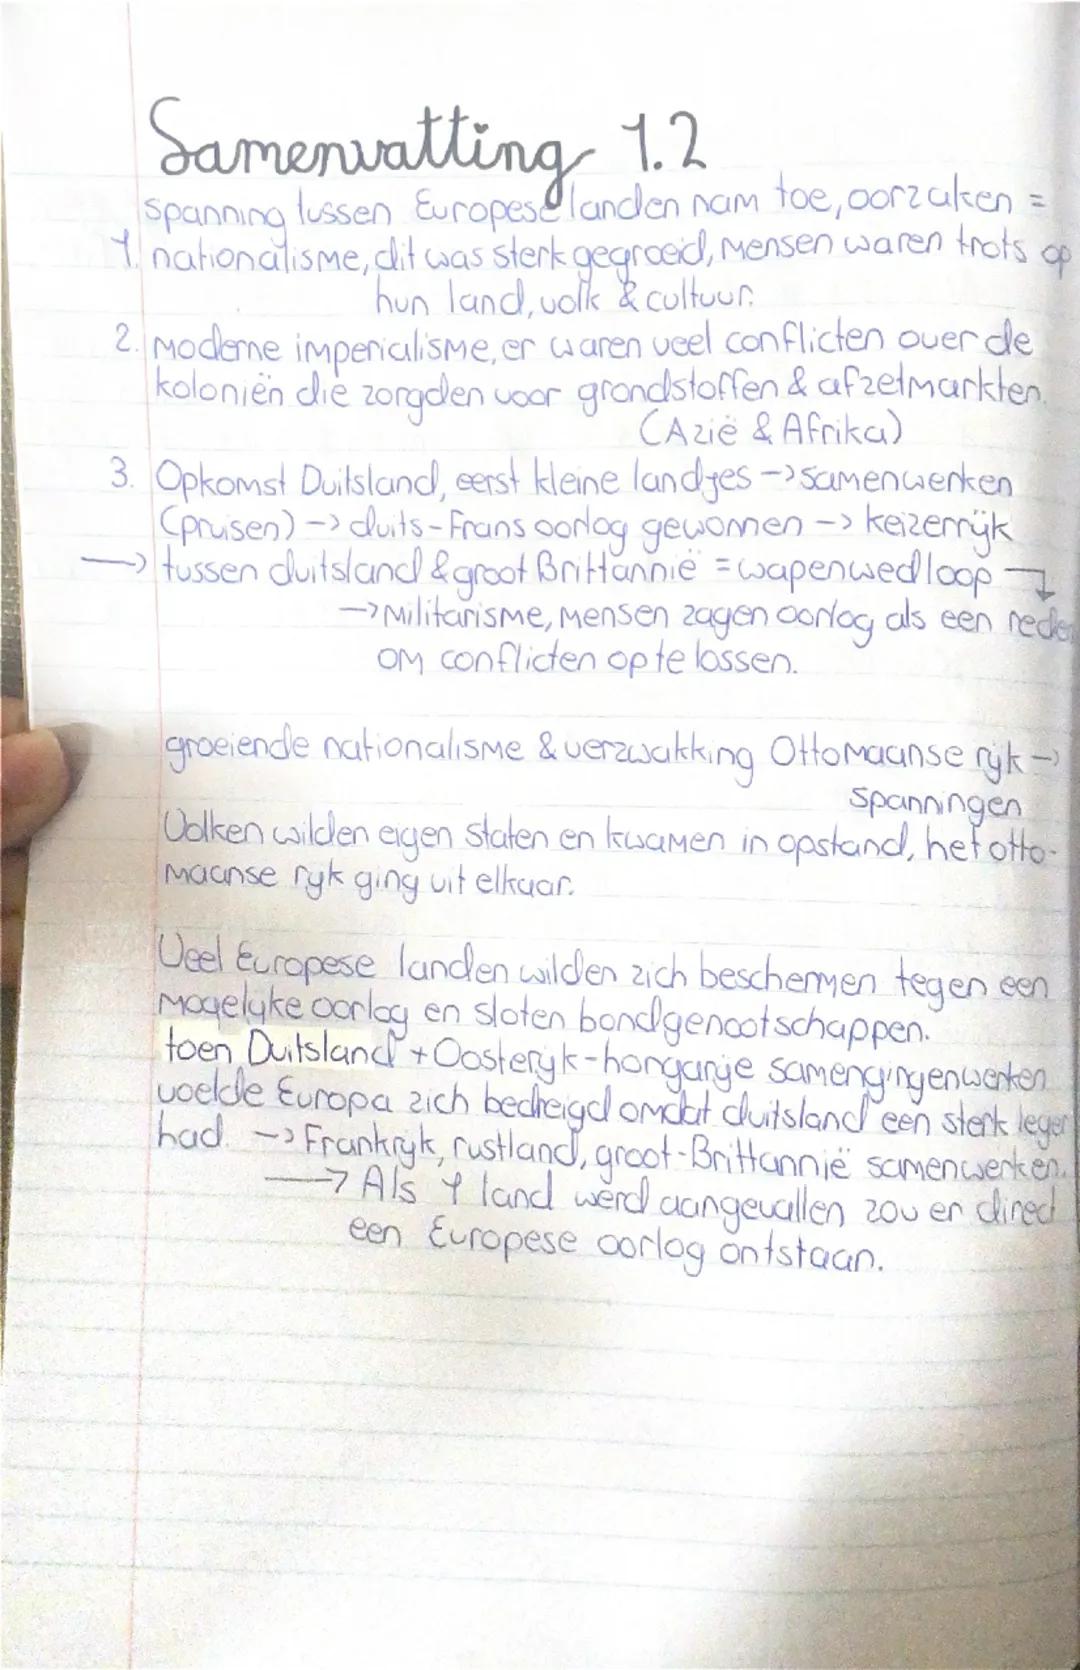 Samenvatting 1.2
spanning tussen Europese landen nam toe, oorzaken =
1. nationalisme, dit was sterk gegroeid, mensen waren trots op
hun land, volk & cultuur.
2. moderne imperialisme, er waren veel conflicten over de
koloniën die zorgden voor grondstoffen & afzetmarkten.
(Azië & Afrika)
3. Opkomst Duitsland, eerst kleine landjes -> samenwerken
(pruisen) -> duits-Frans oorlog gewonnen -> keizerrijk
-> tussen duitsland & groot Brittannië = wapenwedloop
-> Militarisme, mensen zagen oorlog als een reden
om conflicten op te lossen.
groeiende nationalisme & verzwakking Ottomaanse rijk ->
spanningen
Volken wilden eigen staten en kwamen in opstand, het otto-
maanse rijk ging uit elkaar.
Veel Europese landen wilden zich beschermen tegen een
mogelijke oorlog en sloten bondgenootschappen.
toen Duitsland + Oosterijk-hongarije samengingenwerken
voelde Europa zich bedreigd omdat duitsland een sterk leger
had. -> Frankrijk, rustland, groot-Brittannië samenwerken.
-> Als 1 land werd aangevallen zou er direct
een Europese oorlog ontstaan.